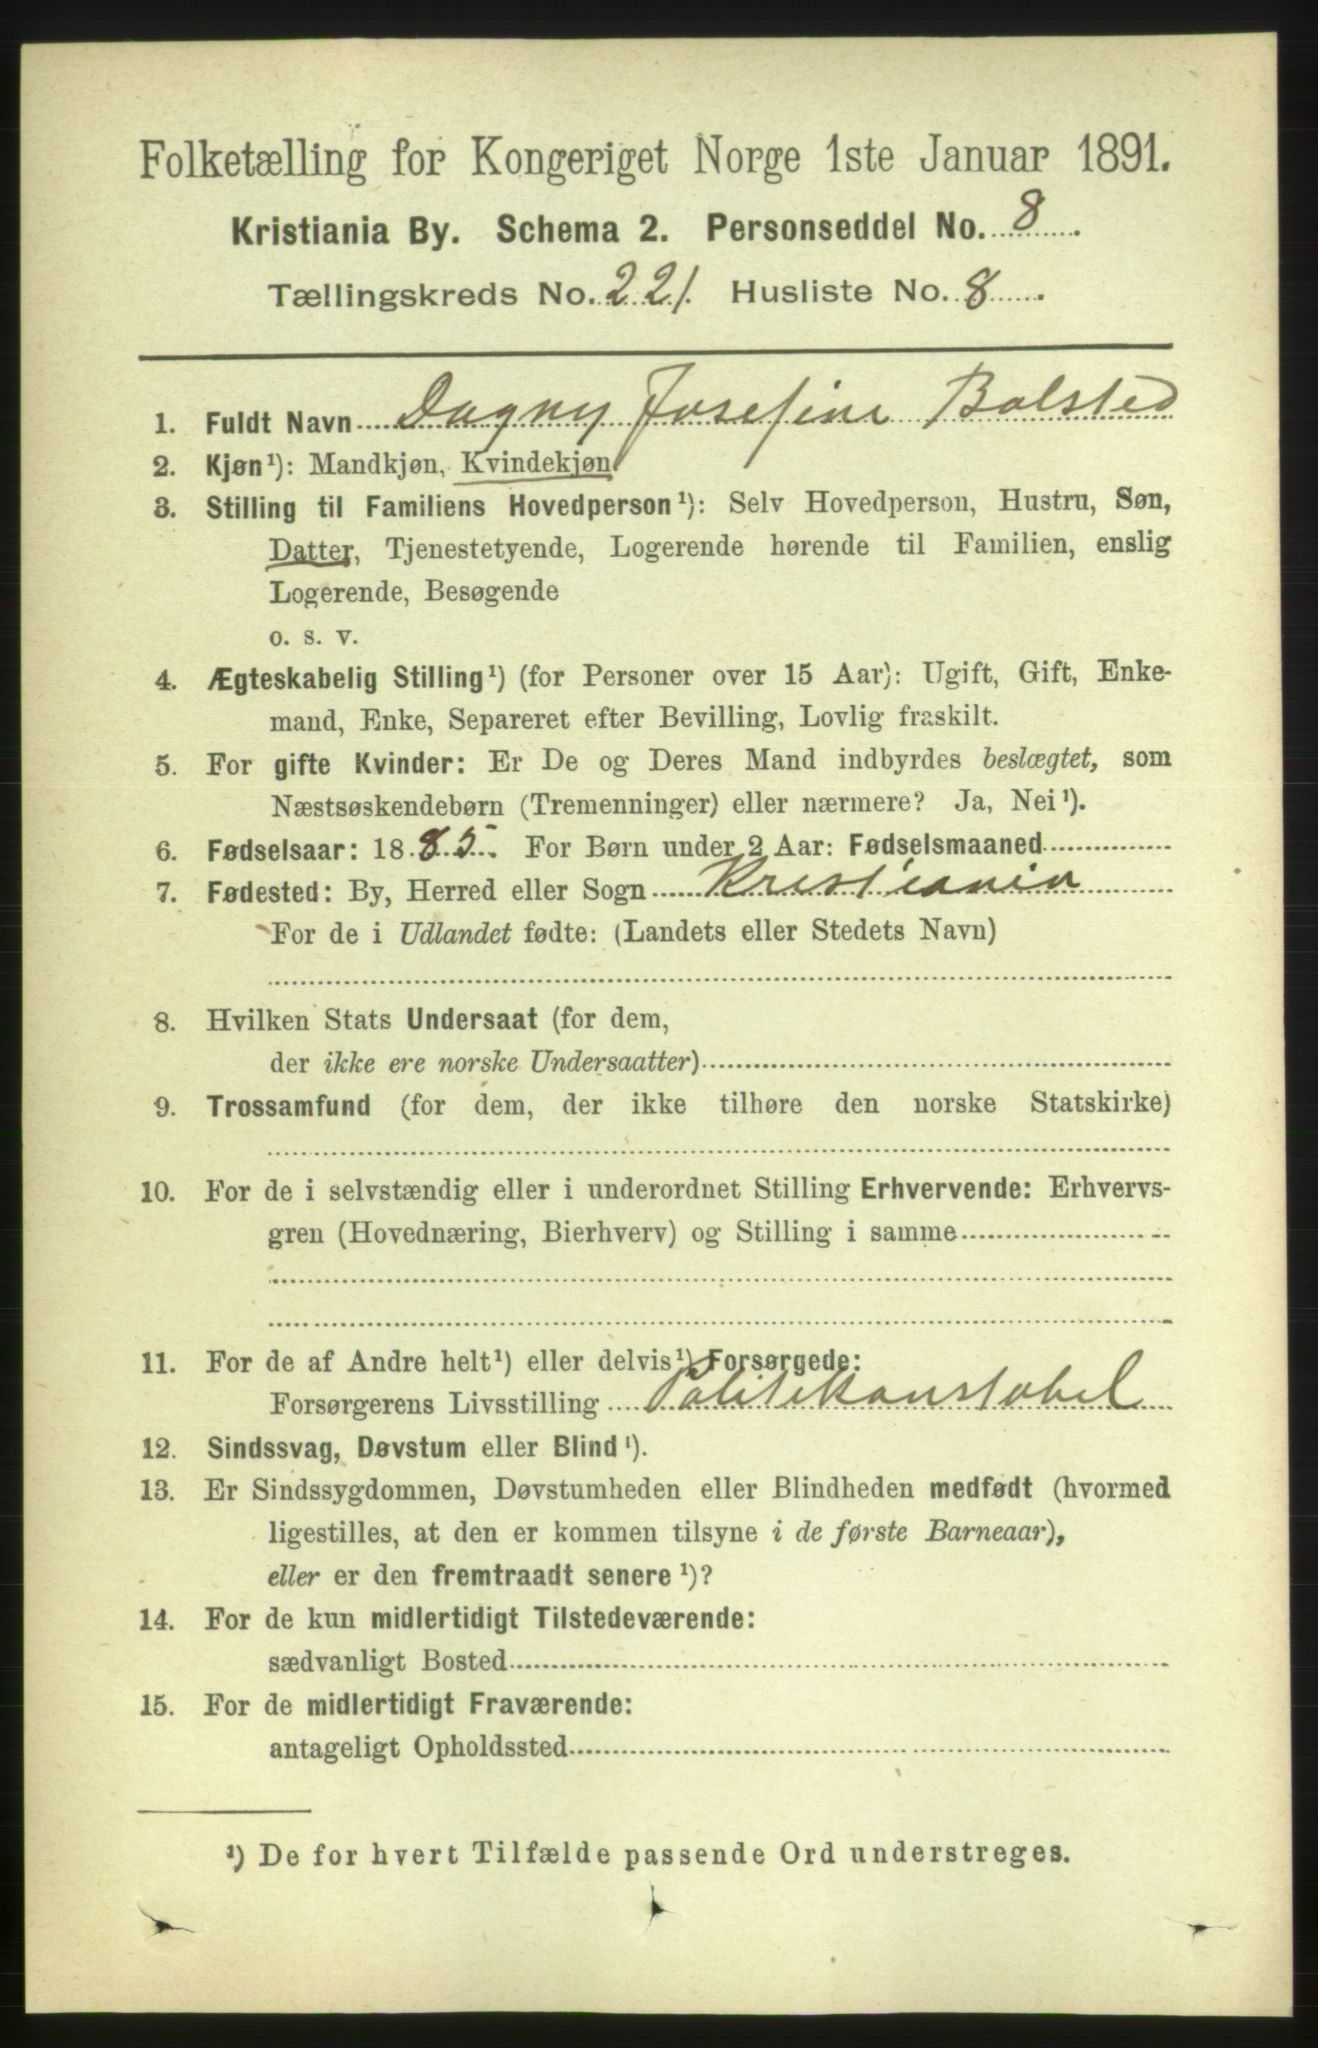 Folketælling for Kongeriget Norge 1ste Januar 1891.
Kristiania By. Schema 2. Personseddel No. 8.
Tællingskreds No. 221. Husliste No. 8.
1. Fuldt Navn Dagny Josefine Bolsted
2. Kjøn¹): Mandkjøn, Kvindekjøn
3. Stilling til Familiens Hovedperson¹): Selv Hovedperson, Hustru, Søn,
Datter, Tjenestetyende, Logerende hørende til Familien, enslig
Logerende, Besøgende
o. s. v.
4. Ægteskabelig Stilling¹) (for Personer over 15 Aar): Ugift, Gift, Enke-
mand, Enke, Separeret efter Bevilling, Lovlig fraskilt.
5. For gifte Kvinder: Er De og Deres Mand indbyrdes beslægtet, som
Næstsøskendebørn (Tremenninger) eller nærmere? Ja, Nei¹).
6. Fødselsaar: 1885. For Børn under 2 Aar: Fødselsmaaned
7. Fødested: By, Herred eller Sogn Kristiania
For de i Udlandet fødte: (Landets eller Stedets Navn)
8. Hvilken Stats Undersaat (for dem,
der ikke ere norske Undersaatter)
9. Trossamfund (for dem, der ikke tilhøre den norske Statskirke)
10. For de i selvstændig eller i underordnet Stilling Erhvervende: Erhvervs-
gren (Hovednæring, Bierhverv) og Stilling i samme
11. For de af Andre helt¹) eller delvis¹) Forsørgede:
Forsørgerens Livsstilling Politikonstabel
12. Sindssvag, Døvstum eller Blind¹).
13. Er Sindssygdommen, Døvstumheden eller Blindheden medfødt (hvormed
ligestilles, at den er kommen tilsyne i de første Barneaar),
eller er den fremtraadt senere¹)?
14. For de kun midlertidigt Tilstedeværende:
sædvanligt Bosted
15. For de midlertidigt Fraværende:
antageligt Opholdssted
¹) De for hvert Tilfælde passende Ord understreges.